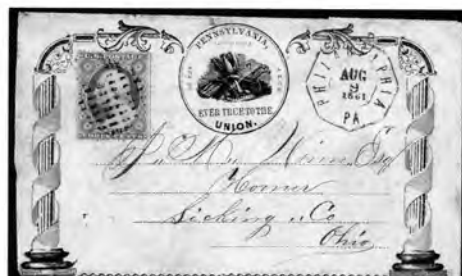 PENNSYLVANIA,
EVER TRUE TO THE
UNION.
PHILADELPHIA
AUG
9
1861
PA.
Esq
Homer
Licking Co
Ohio